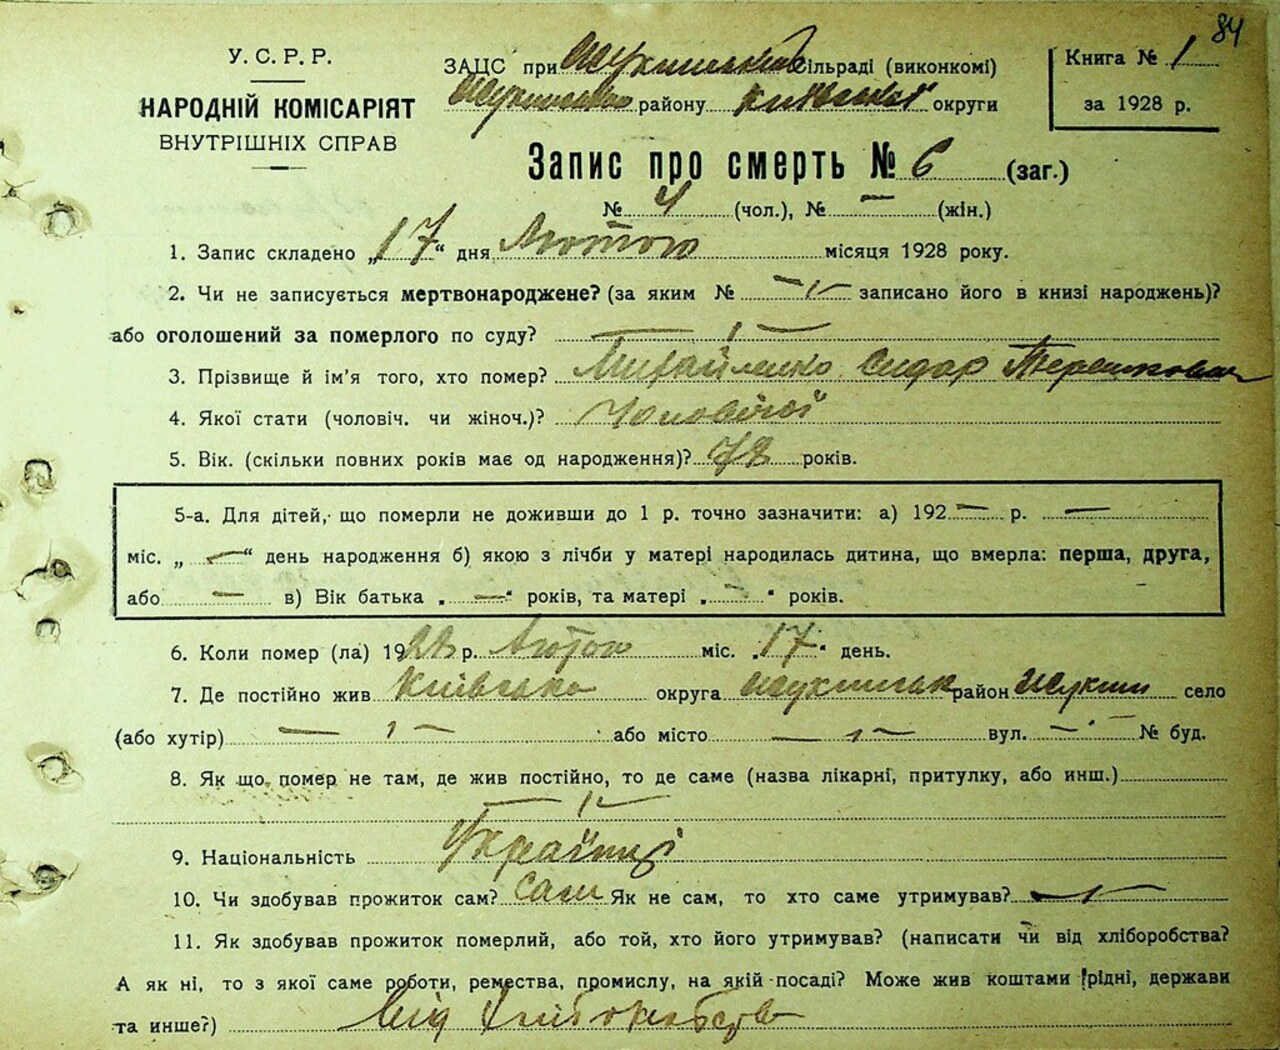 84
У. С. Р. Р.
НАРОДНІЙ КОМІСАРІЯТ
ВНУТРІШНІХ СПРАВ
ЗАЦС при сільраді (виконкомі)
району Київської округи
Книга № 1
за 1928 р.
Запис про смерть № 6 (заг.)
№ 4 (чол.), № — (жін.)
1. Запис складено „17“ дня Лютого місяця 1928 року.
2. Чи не записується мертвонароджене? (за яким № — записано його в книзі народжень)?
або оголошений за померлого по суду? —
3. Прізвище й ім'я того, хто помер? Михайленко Сидар Терешкович
4. Якої стати (чоловіч. чи жіноч.)? Чоловічої
5. Вік. (скільки повних років має од народження)? років.
5-а. Для дітей, що померли не доживши до 1 р. точно зазначити: а) 192 — р. —
міс. „ — “ день народження б) якою з лічби у матері народилась дитина, що вмерла: перша, друга,
або — в) Вік батька „ — “ років, та матері „ — “ років.
6. Коли помер (ла) 1928 р. Лютого міс. „17“ день.
7. Де постійно жив Київська округа район село
(або хутір) — або місто — вул. — № буд.
8. Як що помер не там, де жив постійно, то де саме (назва лікарні, притулку, або инш.)
—
9. Національність Українці
10. Чи здобував прожиток сам? Сам Як не сам, то хто саме утримував? —
11. Як здобував прожиток померлий, або той, хто його утримував? (написати чи від хліборобства?
А як ні, то з якої саме роботи, ремества, промислу, на якій посаді? Може жив коштами рідні, держави
та инше?) Від Хліборобства